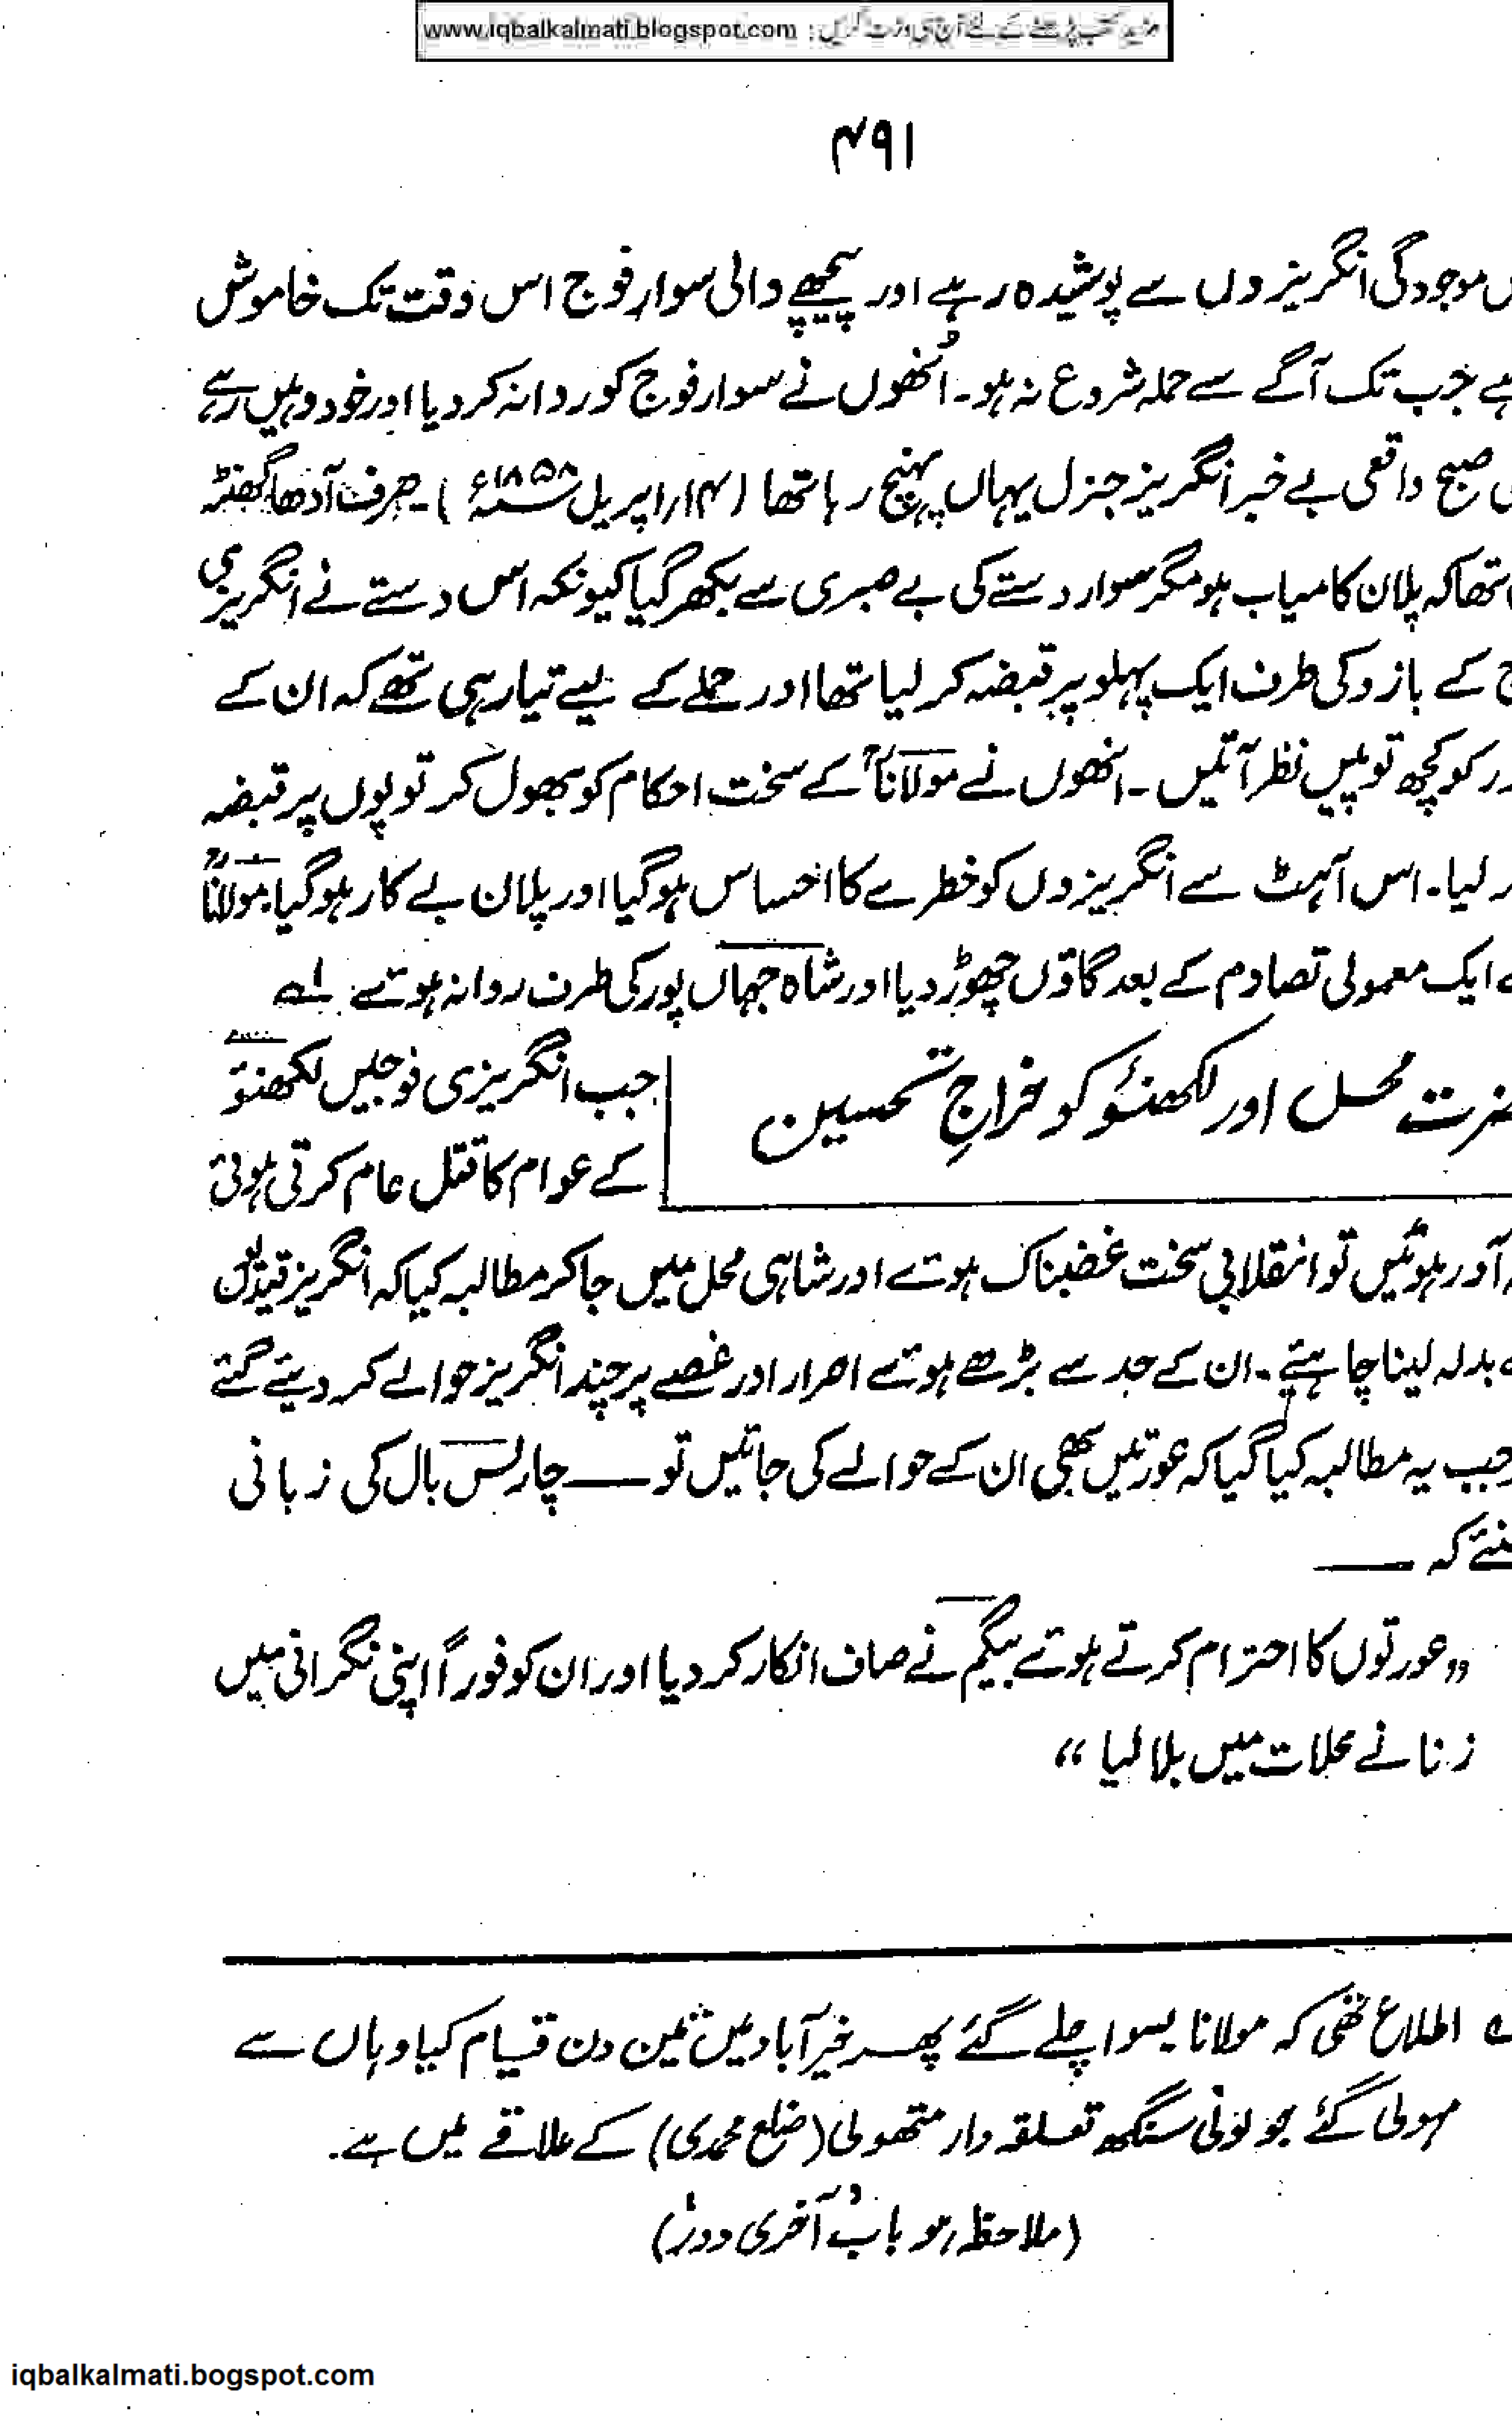 www.iqbalkalmati.blogspot.com : مزید کتب پڑھنے کے لئے آج ہی وزٹ کریں
۴۹۱
موجودگی انگریزوں سے پوشیدہ رہے اور پیچھے والی سوار فوج اس وقت تک خاموش
جب تک آگے سے حملہ شروع نہ ہو۔ اُنھوں نے سوار فوج کو روانہ کر دیا اور خود وہیں رہے
صبح واقعی بے خبر انگریز جنرل یہاں پہنچ رہا تھا (۱۴؍اپریل ۱۸۵۸ء)۔ صرف آدھا گھنٹہ
تھا کہ پلان کامیاب ہو مگر سوار دستے کی بے صبری سے بکھر گیا کیونکہ اس دستے نے انگریزی
کے بازو کی طرف ایک پہلو پر قبضہ کر لیا تھا اور حملے کے لیے تیار ہی تھے کہ ان کے
کو کچھ توپیں نظر آئیں۔ انھوں نے مولاناؒ کے سخت احکام کو بھول کر توپوں پر قبضہ
لیا۔ اس آہٹ سے انگریزوں کو خطرے کا احساس ہو گیا اور پلان بے کار ہو گیا۔ مولاناؒ
ایک معمولی تصادم کے بعد گاؤں چھوڑ دیا اور شاہ جہاں پور کی طرف روانہ ہوئے ۱؎
محل اور لکھنؤ کو خراجِ تحسین
جب انگریزی فوجیں لکھنؤ
کے عوام کا قتل عام کرتی ہوئی
آور ہوئیں تو انقلابی سخت غضبناک ہوئے اور شاہی محل میں جا کر مطالبہ کیا کہ انگریز قیدیوں
بدلہ لینا چاہیئے۔ ان کے حد سے بڑھے ہوئے اصرار اور غصے پر چند انگریز حوالے کر دیئے گئے
جب یہ مطالبہ کیا گیا کہ عورتیں بھی ان کے حوالے کی جائیں تو —— چارلس بال کی زبانی
کہ ——
"عورتوں کا احترام کرتے ہوئے بیگم نے صاف انکار کر دیا اور ان کو فوراً اپنی نگرانی میں
زنانے محلات میں بلا لیا"
اطلاع تھی کہ مولانا بسوا چلے گئے پھر خیرآباد میں تین دن قیام کیا وہاں سے
مہولی گئے جو لونی سنگھ تعلقہ دار متھولی (ضلع محمدی) کے علاقے میں ہے۔
(ملاحظہ ہو باب "آخری دور")
iqbalkalmati.bogspot.com